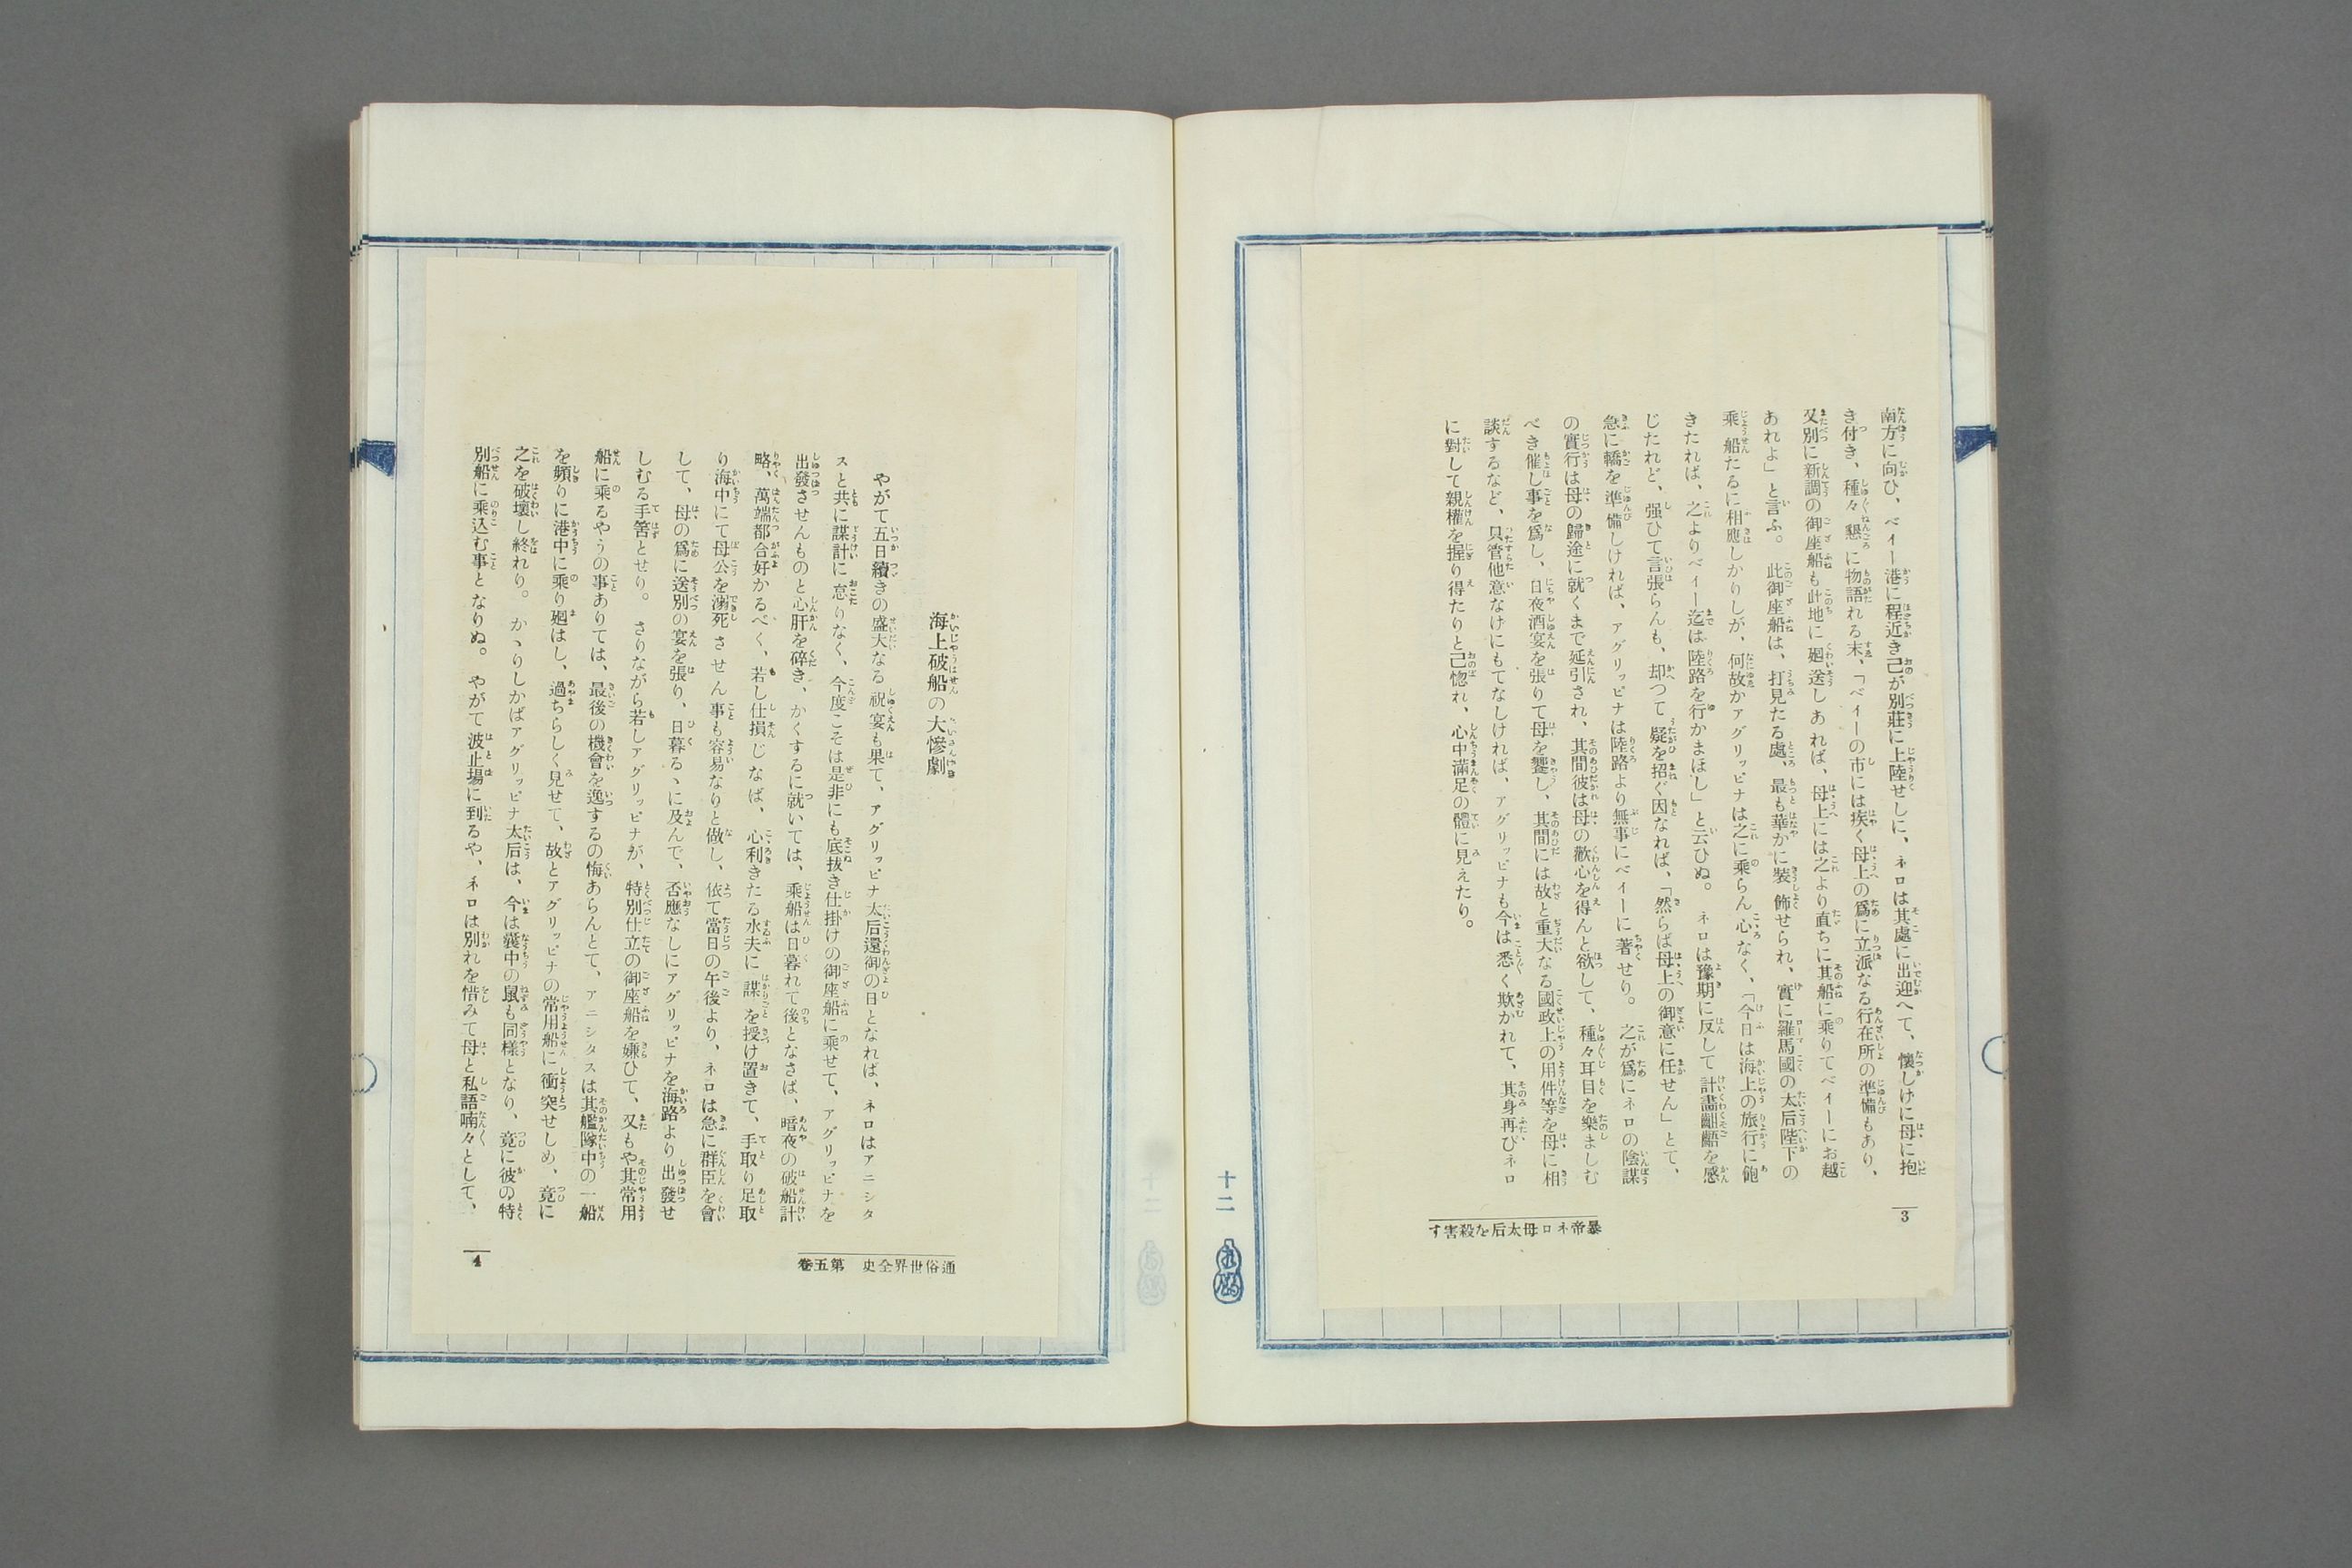 南方に向ひ、ベイー港に程近き己が別莊に上陸せしに、ネロは其處に出迎へて、懷しけに母に抱
き付き、種々懇に物語れる末、「ベイーの市には疾く母上の爲に立派なる行在所の準備もあり、
又別に新調の御座船も此地に廻送しあれば、母上には之より直ちに其船に乘りてベイーにお越
あれよ」と言ふ。此御座船は、打見たる處、最も華かに裝飾せられ、實に羅馬國の太后陛下の
乘船たるに相應しかりしが、何故かアグリッピナは之に乘らん心なく、「今日は海上の旅行に飽
きたれば、之よりベイー迄は陸路を行かまほし」と云ひぬ。ネロは豫期に反して計畫齟齬を感
じたれど、强ひて言張らんも、却つて疑を招ぐ因なれば、「然らば母上の御意に任せん」とて、
急に轎を準備しければ、アグリッピナは陸路より無事にベイーに著せり。之が爲にネロの陰謀
の實行は母の歸途に就くまで延引され、其間彼は母の歡心を得んと欲して、種々耳目を樂ましむ
べき催し事を爲し、日夜酒宴を張りて母を饗し、其間には故と重大なる國政上の用件等を母に相
談するなど、只管他意なけにもてなしければ、アグリッピナも今は悉く欺かれて、其身再びネロ
に對して親權を握り得たりと己惚れ、心中滿足の體に見えたり。
3
暴帝ネロ母太后を殺害す
十二
海上破船の大慘劇
やがて五日續きの盛大なる祝宴も果て、アグリッピナ太后還御の日となれば、ネロはアニシタ
スと共に謀計に怠りなく、今度こそは是非にも底拔き仕掛けの御座船に乘せて、アグリッピナを
出發させんものと心肝を碎き、かくするに就いては、乘船は日暮れて後となさば、暗夜の破船計
略、萬端都合好かるべく、若し仕損じなば、心利きたる水夫に謀を授け置きて、手取り足取
り海中にて母公を溺死させん事も容易なりと做し、依て當日の午後より、ネロは急に群臣を會
して、母の爲に送別の宴を張り、日暮るゝに及んで、否應なしにアグリッピナを海路より出發せ
しむる手筈とせり。さりながら若しアグリッピナが、特別仕立の御座船を嫌ひて、又もや其常用
船に乘るやうの事ありては、最後の機會を逸するの悔あらんとて、アニシタスは其艦隊中の一船
を頻りに港中に乘り廻はし、過ちらしく見せて、故とアグリッピナの常用船に衝突せしめ、竟に
之を破壞し終れり。かゝりしかばアグリッピナ太后は、今は囊中の鼠も同樣となり、竟に彼の特
別船に乘込む事となりぬ。やがて波止場に到るや、ネロは別れを惜みて母と私語喃々として、
通俗世界全史　第五卷
4